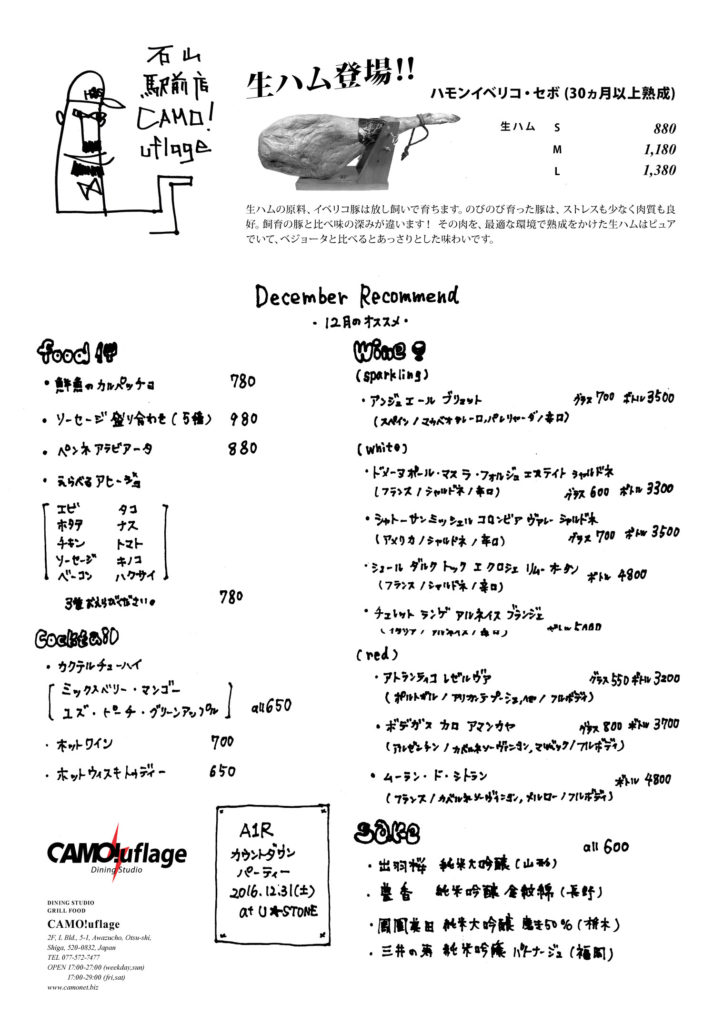 石山
駅前店
CAMO!
uflage
生ハム登場!!
ハモンイベリコ・セボ (30ヵ月以上熟成)
生ハム S 880
M 1,180
L 1,380
生ハムの原料、イベリコ豚は放し飼いで育ちます。のびのび育った豚は、ストレスも少なく肉質も良
好。飼育の豚と比べ味の深みが違います! その肉を、最適な環境で熟成をかけた生ハムはピュア
でいて、ベジョータと比べるとあっさりとした味わいです。
December Recommend
・12月のオススメ・
food
・鮮魚のカルパッチョ 780
・ソーセージ盛り合わせ(5種) 980
・ペンネアラビアータ 880
・えらべるアヒージョ
エビ タコ
ホタテ ナス
チキン トマト
ソーセージ キノコ
ベーコン ハクサイ
3種お選びください。 780
Cocktail
・カクテルチューハイ
ミックスベリー・マンゴー
ユズ・ピーチ・グリーンアップル all650
・ホットワイン 700
・ホットウィスキートゥディー 650
Wine
(sparkling)
・アンジュエール ブリュット グラス700 ボトル3500
(スペイン/マカベオ,チャレーロ,パレリャーダ/辛口)
(white)
・ドメーヌポール・マス ラ・フォルジュ エステイト シャルドネ
(フランス/シャルドネ/辛口) グラス600 ボトル3300
・シャトーサンミッシェル コロンビア ヴァレー シャルドネ
(アメリカ/シャルドネ/辛口) グラス700 ボトル3500
・シュール ダルク トック エ クロシェ リムー オータン
(フランス/シャルドネ/辛口) ボトル4800
・チェレット ランゲ アルネイス ブランジェ
(イタリア/アルネイス/辛口) ボトル5400
(red)
・アトランティコ レゼルヴァ グラス550 ボトル3200
(ポルトガル/アリカンテブーシェ,他/フルボディ)
・ボデガス カロ アマンカヤ グラス800 ボトル3700
(アルゼンチン/カベルネソーヴィニヨン,マルベック/フルボディ)
・ムーラン・ド・シトラン ボトル4800
(フランス/カベルネソーヴィニヨン,メルロー/フルボディ)
Sake all 600
・出羽桜 純米大吟醸(山形)
・豊香 純米吟醸 金紋錦(長野)
・鳳凰美田 純米大吟醸 磨き50%(栃木)
・三井の寿 純米吟醸 パトナージュ(福岡)
CAMO!uflage
Dining Studio
DINING STUDIO
GRILL FOOD
CAMO!uflage
2F, L Bld., 5-1, Awazucho, Otsu-shi,
Shiga, 520-0832, Japan
TEL 077-572-7477
OPEN 17:00-27:00 (weekday,sun)
17:00-29:00 (fri,sat)
www.camonet.biz
A1R
カウントダウン
パーティー
2016.12.31(土)
at U★STONE